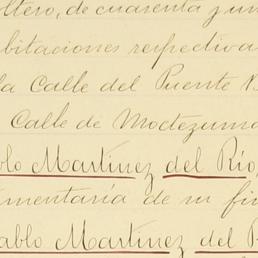 oltero, de cuarenta y un
bitaciones respectiva
la Calle del Puente B
Calle de Moctezuma
blo Martinez del Río,
mentaría de su fi
ablo Martinez del R